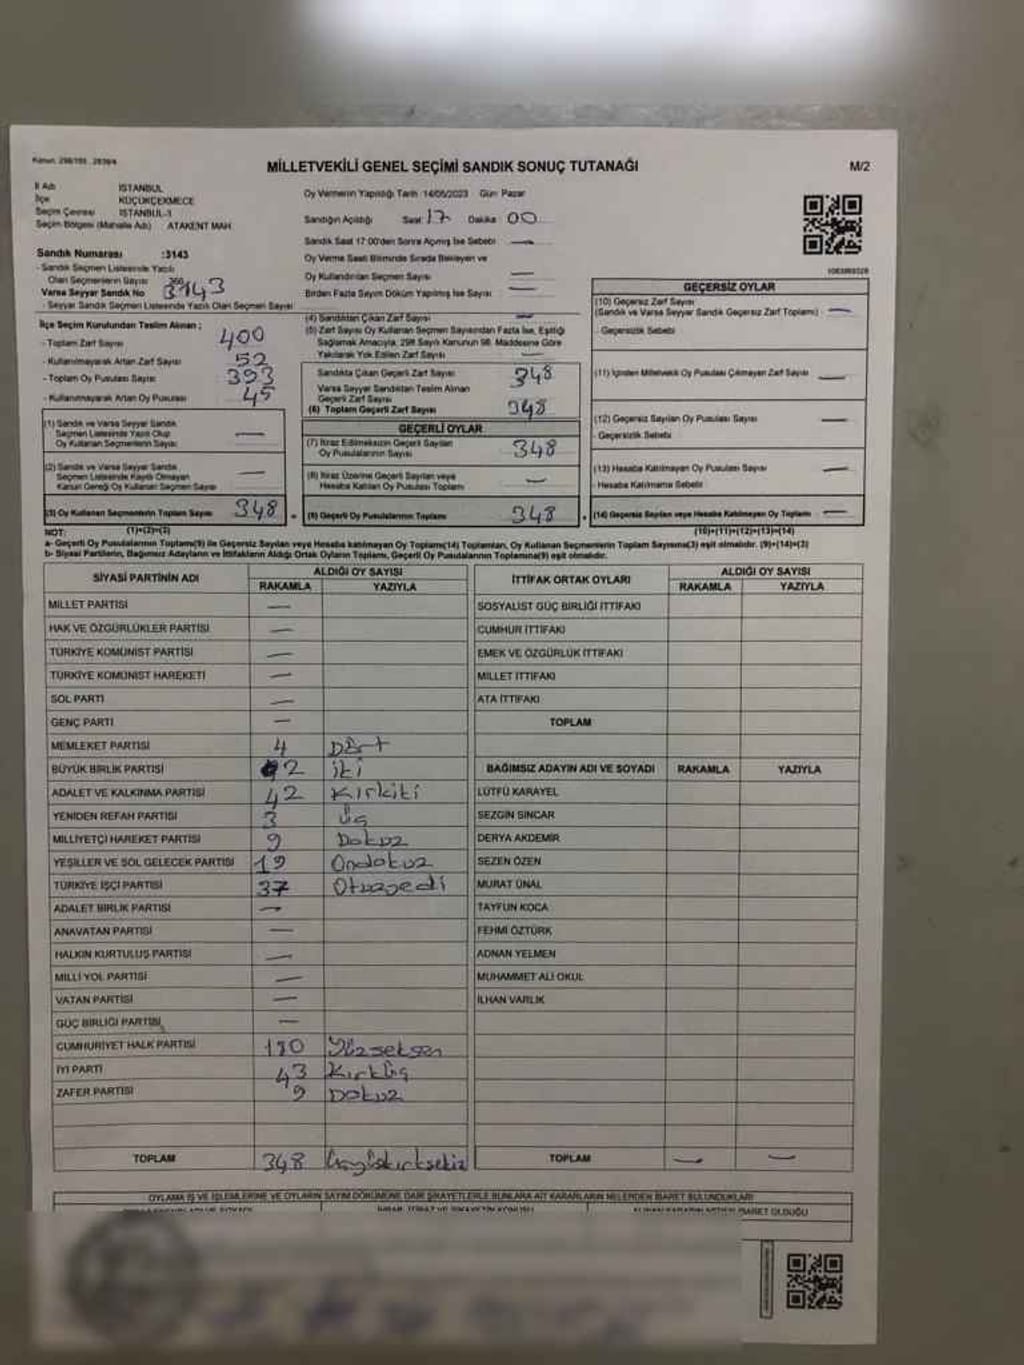 Kanun: 298/105 , 2839/4
MİLLETVEKİLİ GENEL SEÇİMİ SANDIK SONUÇ TUTANAĞI
M/2
İl Adı İSTANBUL
İlçe KÜÇÜKÇEKMECE
Seçim Çevresi İSTANBUL-3
Seçim Bölgesi (Mahalle Adı) ATAKENT MAH.
Sandık Numarası :3143
- Sandık Seçmen Listesinde Yazılı
Olan Seçmenlerin Sayısı
Varsa Seyyar Sandık No 3143
- Seyyar Sandık Seçmen Listesinde Yazılı Olan Seçmen Sayısı
Oy Vermenin Yapıldığı Tarih :14/05/2023 Gün: Pazar
Sandığın Açıldığı Saat 17 Dakika 00
Sandık Saat 17:00'den Sonra Açılmış İse Sebebi —
Oy Verme Saati Bitiminde Sırada Bekleyen ve
Oy Kullandırılan Seçmen Sayısı —
Birden Fazla Sayım Döküm Yapılmış İse Sayısı —
İlçe Seçim Kurulundan Teslim Alınan ;
- Toplam Zarf Sayısı 400
- Kullanılmayarak Artan Zarf Sayısı 52
- Toplam Oy Pusulası Sayısı 393
- Kullanılmayarak Artan Oy Pusulası 45
(1) Sandık ve Varsa Seyyar Sandık
Seçmen Listesinde Yazılı Olup
Oy Kullanan Seçmenlerin Sayısı —
(2) Sandık ve Varsa Seyyar Sandık
Seçmen Listesinde Kayıtlı Olmayan
Kanun Gereği Oy Kullanan Seçmen Sayısı —
(3) Oy Kullanan Seçmenlerin Toplam Sayısı 348
(1)+(2)=(3)
(4) Sandıktan Çıkan Zarf Sayısı —
(5) Zarf Sayısı Oy Kullanan Seçmen Sayısından Fazla İse, Eşitliği
Sağlamak Amacıyla, 298 Sayılı Kanunun 98. Maddesine Göre
Yakılarak Yok Edilen Zarf Sayısı —
Sandıkta Çıkan Geçerli Zarf Sayısı 348
Varsa Seyyar Sandıktan Teslim Alınan
Geçerli Zarf Sayısı
(6) Toplam Geçerli Zarf Sayısı 348
GEÇERLİ OYLAR
(7) İtiraz Edilmeksizin Geçerli Sayılan
Oy Pusulalarının Sayısı 348
(8) İtiraz Üzerine Geçerli Sayılan veya
Hesaba Katılan Oy Pusulası Toplamı —
(9) Geçerli Oy Pusulalarının Toplamı 348
1083869328
GEÇERSİZ OYLAR
(10) Geçersiz Zarf Sayısı
(Sandık ve Varsa Seyyar Sandık Geçersiz Zarf Toplamı) —
- Geçersizlik Sebebi
(11) İçinden Milletvekili Oy Pusulası Çıkmayan Zarf Sayısı —
(12) Geçersiz Sayılan Oy Pusulası Sayısı —
- Geçersizlik Sebebi
(13) Hesaba Katılmayan Oy Pusulası Sayısı —
- Hesaba Katılmama Sebebi
(14) Geçersiz Sayılan veya Hesaba Katılmayan Oy Toplamı —
(10)+(11)+(12)+(13)=(14)
NOT:
a- Geçerli Oy Pusulalarının Toplamı(9) ile Geçersiz Sayılan veya Hesaba katılmayan Oy Toplamı(14) Toplamları, Oy Kullanan Seçmenlerin Toplam Sayısına(3) eşit olmalıdır. (9)+(14)=(3)
b- Siyasi Partilerin, Bağımsız Adayların ve İttifakların Aldığı Ortak Oyların Toplamı, Geçerli Oy Pusulalarının Toplamına(9) eşit olmalıdır.
SİYASİ PARTİNİN ADI ALDIĞI OY SAYISI
RAKAMLA YAZIYLA
MİLLET PARTİSİ —
HAK VE ÖZGÜRLÜKLER PARTİSİ —
TÜRKİYE KOMÜNİST PARTİSİ —
TÜRKİYE KOMÜNİST HAREKETİ —
SOL PARTİ —
GENÇ PARTİ —
MEMLEKET PARTİSİ 4 Dört
BÜYÜK BİRLİK PARTİSİ 2 iki
ADALET VE KALKINMA PARTİSİ 42 Kırkiki
YENİDEN REFAH PARTİSİ 3 Üç
MİLLİYETÇİ HAREKET PARTİSİ 9 Dokuz
YEŞİLLER VE SOL GELECEK PARTİSİ 19 Ondokuz
TÜRKİYE İŞÇİ PARTİSİ 37 Otuzyedi
ADALET BİRLİK PARTİSİ —
ANAVATAN PARTİSİ —
HALKIN KURTULUŞ PARTİSİ —
MİLLİ YOL PARTİSİ —
VATAN PARTİSİ —
GÜÇ BİRLİĞİ PARTİSİ —
CUMHURİYET HALK PARTİSİ 180 Yüzseksen
İYİ PARTİ 43 Kırküç
ZAFER PARTİSİ 9 Dokuz
TOPLAM 348 Üçyüzkırksekiz
İTTİFAK ORTAK OYLARI ALDIĞI OY SAYISI
RAKAMLA YAZIYLA
SOSYALİST GÜÇ BİRLİĞİ İTTİFAKI
CUMHUR İTTİFAKI
EMEK VE ÖZGÜRLÜK İTTİFAKI
MİLLET İTTİFAKI
ATA İTTİFAKI
TOPLAM
BAĞIMSIZ ADAYIN ADI VE SOYADI RAKAMLA YAZIYLA
LÜTFÜ KARAYEL
SEZGİN SİNCAR
DERYA AKDEMİR
SEZEN ÖZEN
MURAT ÜNAL
TAYFUN KOCA
FEHMİ ÖZTÜRK
ADNAN YELMEN
MUHAMMET ALİ OKUL
İLHAN VARLIK
TOPLAM — —
OYLAMA İŞ VE İŞLEMLERİNE VE OYLARIN SAYIM DÖKÜMÜNE DAİR ŞİKAYETLERLE BUNLARA AİT KARARLARIN NELERDEN İBARET BULUNDUKLARI